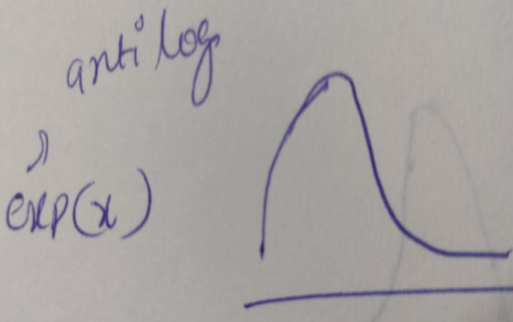 anti log
exp(x)